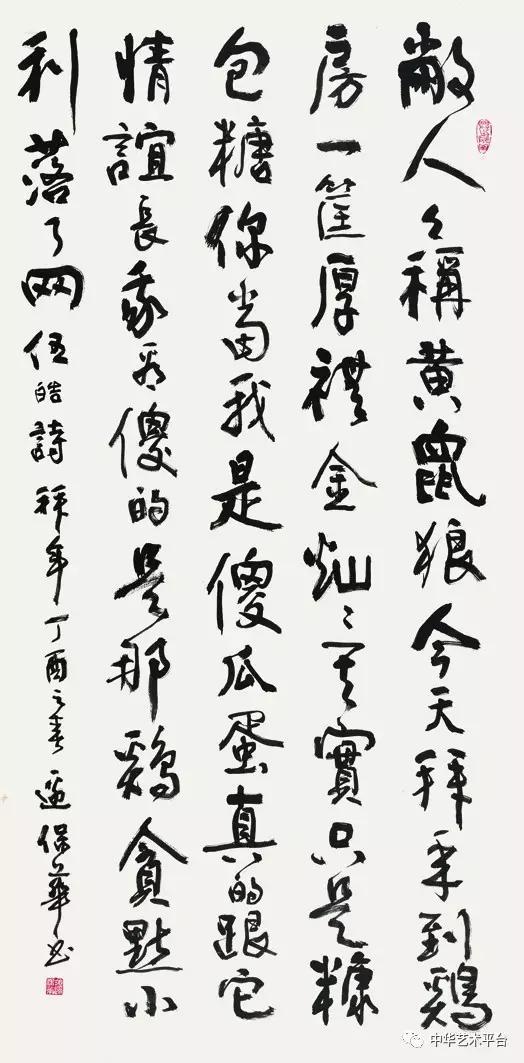 敝人人称黄鼠狼今天拜年到鷄
房一筐厚礼金灿灿其實只是糠
包糖你当我是傻瓜蛋真的跟它
情誼長我看傻的是那鷄貪點小
利落了网 伍皓詩拜年丁酉之春 保華书
中华艺术平台